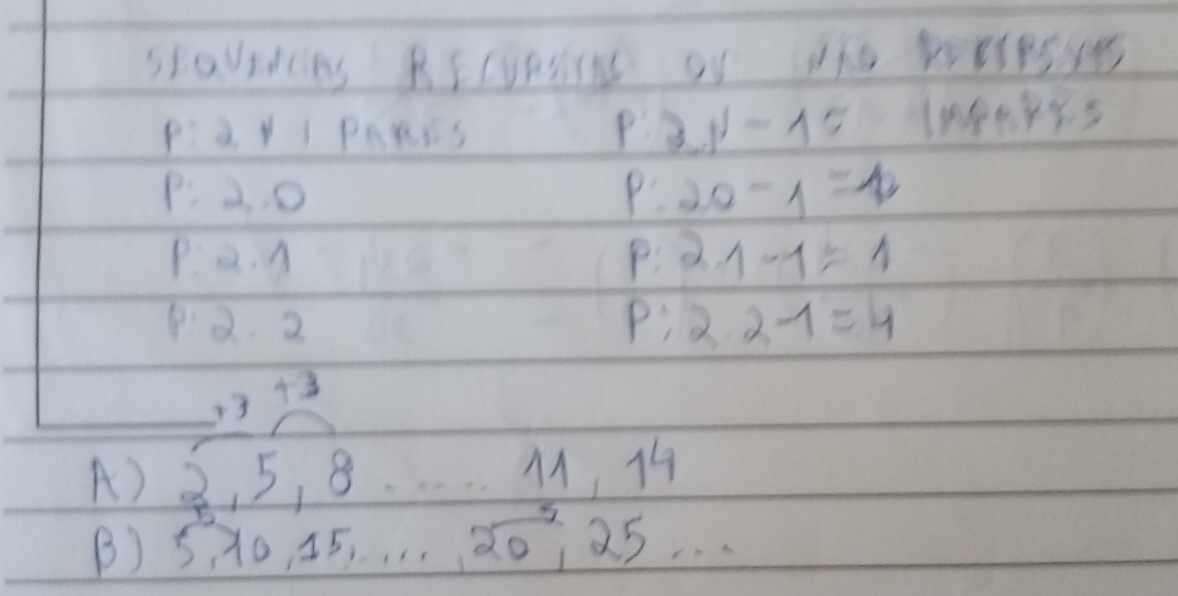 SEQUENCIAS RECURSIVAS OU NÃO RECURSIVAS
P: 2.N | PARES P: 2.N - 1 = IMPARES
P: 2.0 P: 2.0 - 1 =
P: 2.1 P: 2.1 - 1 = 1
P: 2.2 P: 2.2 - 1 = 4
+3 +3
A) 2, 5, 8 ..... 11, 14
5 5
B) 5, 10, 15, ...., 20, 25 ...